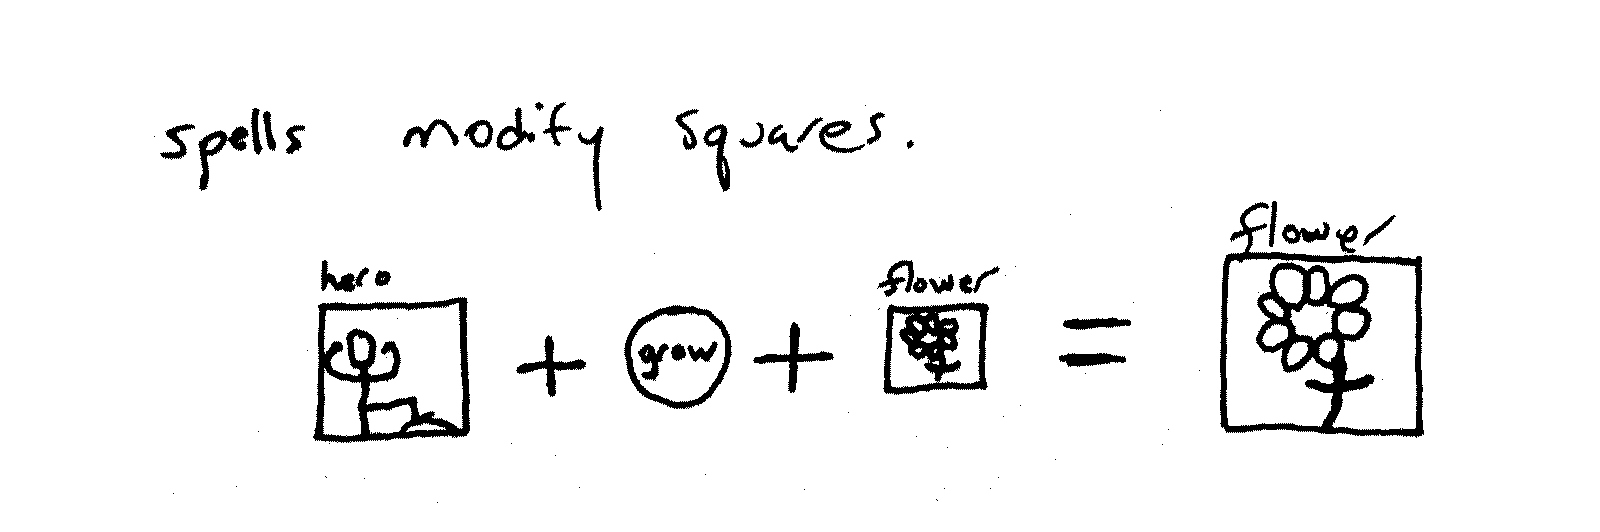 spells modify squares.
hero
grow
flower
flower